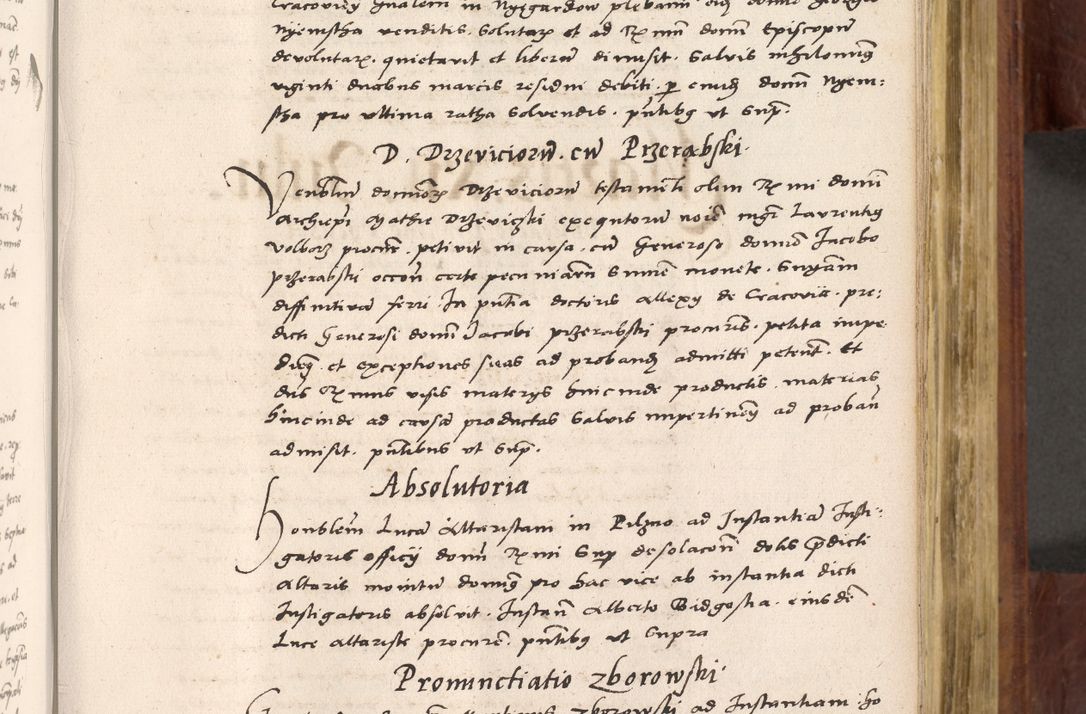 Cracovien in plebanum
Nyemstha venditis. Solutar et ad Rmum domi Episcopum
devolutar. quietavit et liberum dimisit. Salvis nihilominus
viginti duabus marcis residui debiti. per eundem domi Nyem:
stha pro ultima ratha solvendis. pntibus ut Supr.
D. Drzeviciorum. cum Przerabski.
Venblium dominorum Drzeviciorum testamenti olim Rmi domi
Archiepi Mathie Drzeviczki exequutorum noie mgr Laurentius
Volborz procur. petivit in causa. cum Generoso domino Jacobo
przerabski occon certe pecuniarum Summe monete. Snyam
diffinitivam ferri. In pntia doctoris Allexy de Cracovia. pre:
dicti Generosi domi Jacobi przerabski procuris. petita impe
dieq et exceptiones suas ad probandum admitti petent. Et
dns Rmus visis materijs hincinde productis. materias
hincinde ad causam productas Salvis impertinen ad proban
admisit. pntibus ut Supr.
Absolutoria
Honblem Lucam Altaristam in Pilzno ad Instantiam Insti:
gatoris officij domi Rmi Supr desolacon dotis predicti
Altaris monitum dominus pro hac vice ab instantia dicti
Instigatoris absolvit. Instan Alberto Bidgostia. eiusdem
Luce altariste procurem. pntibus ut Supra
Pronunctiatio Zborowski.
Zborowski ad Instantiam. ho